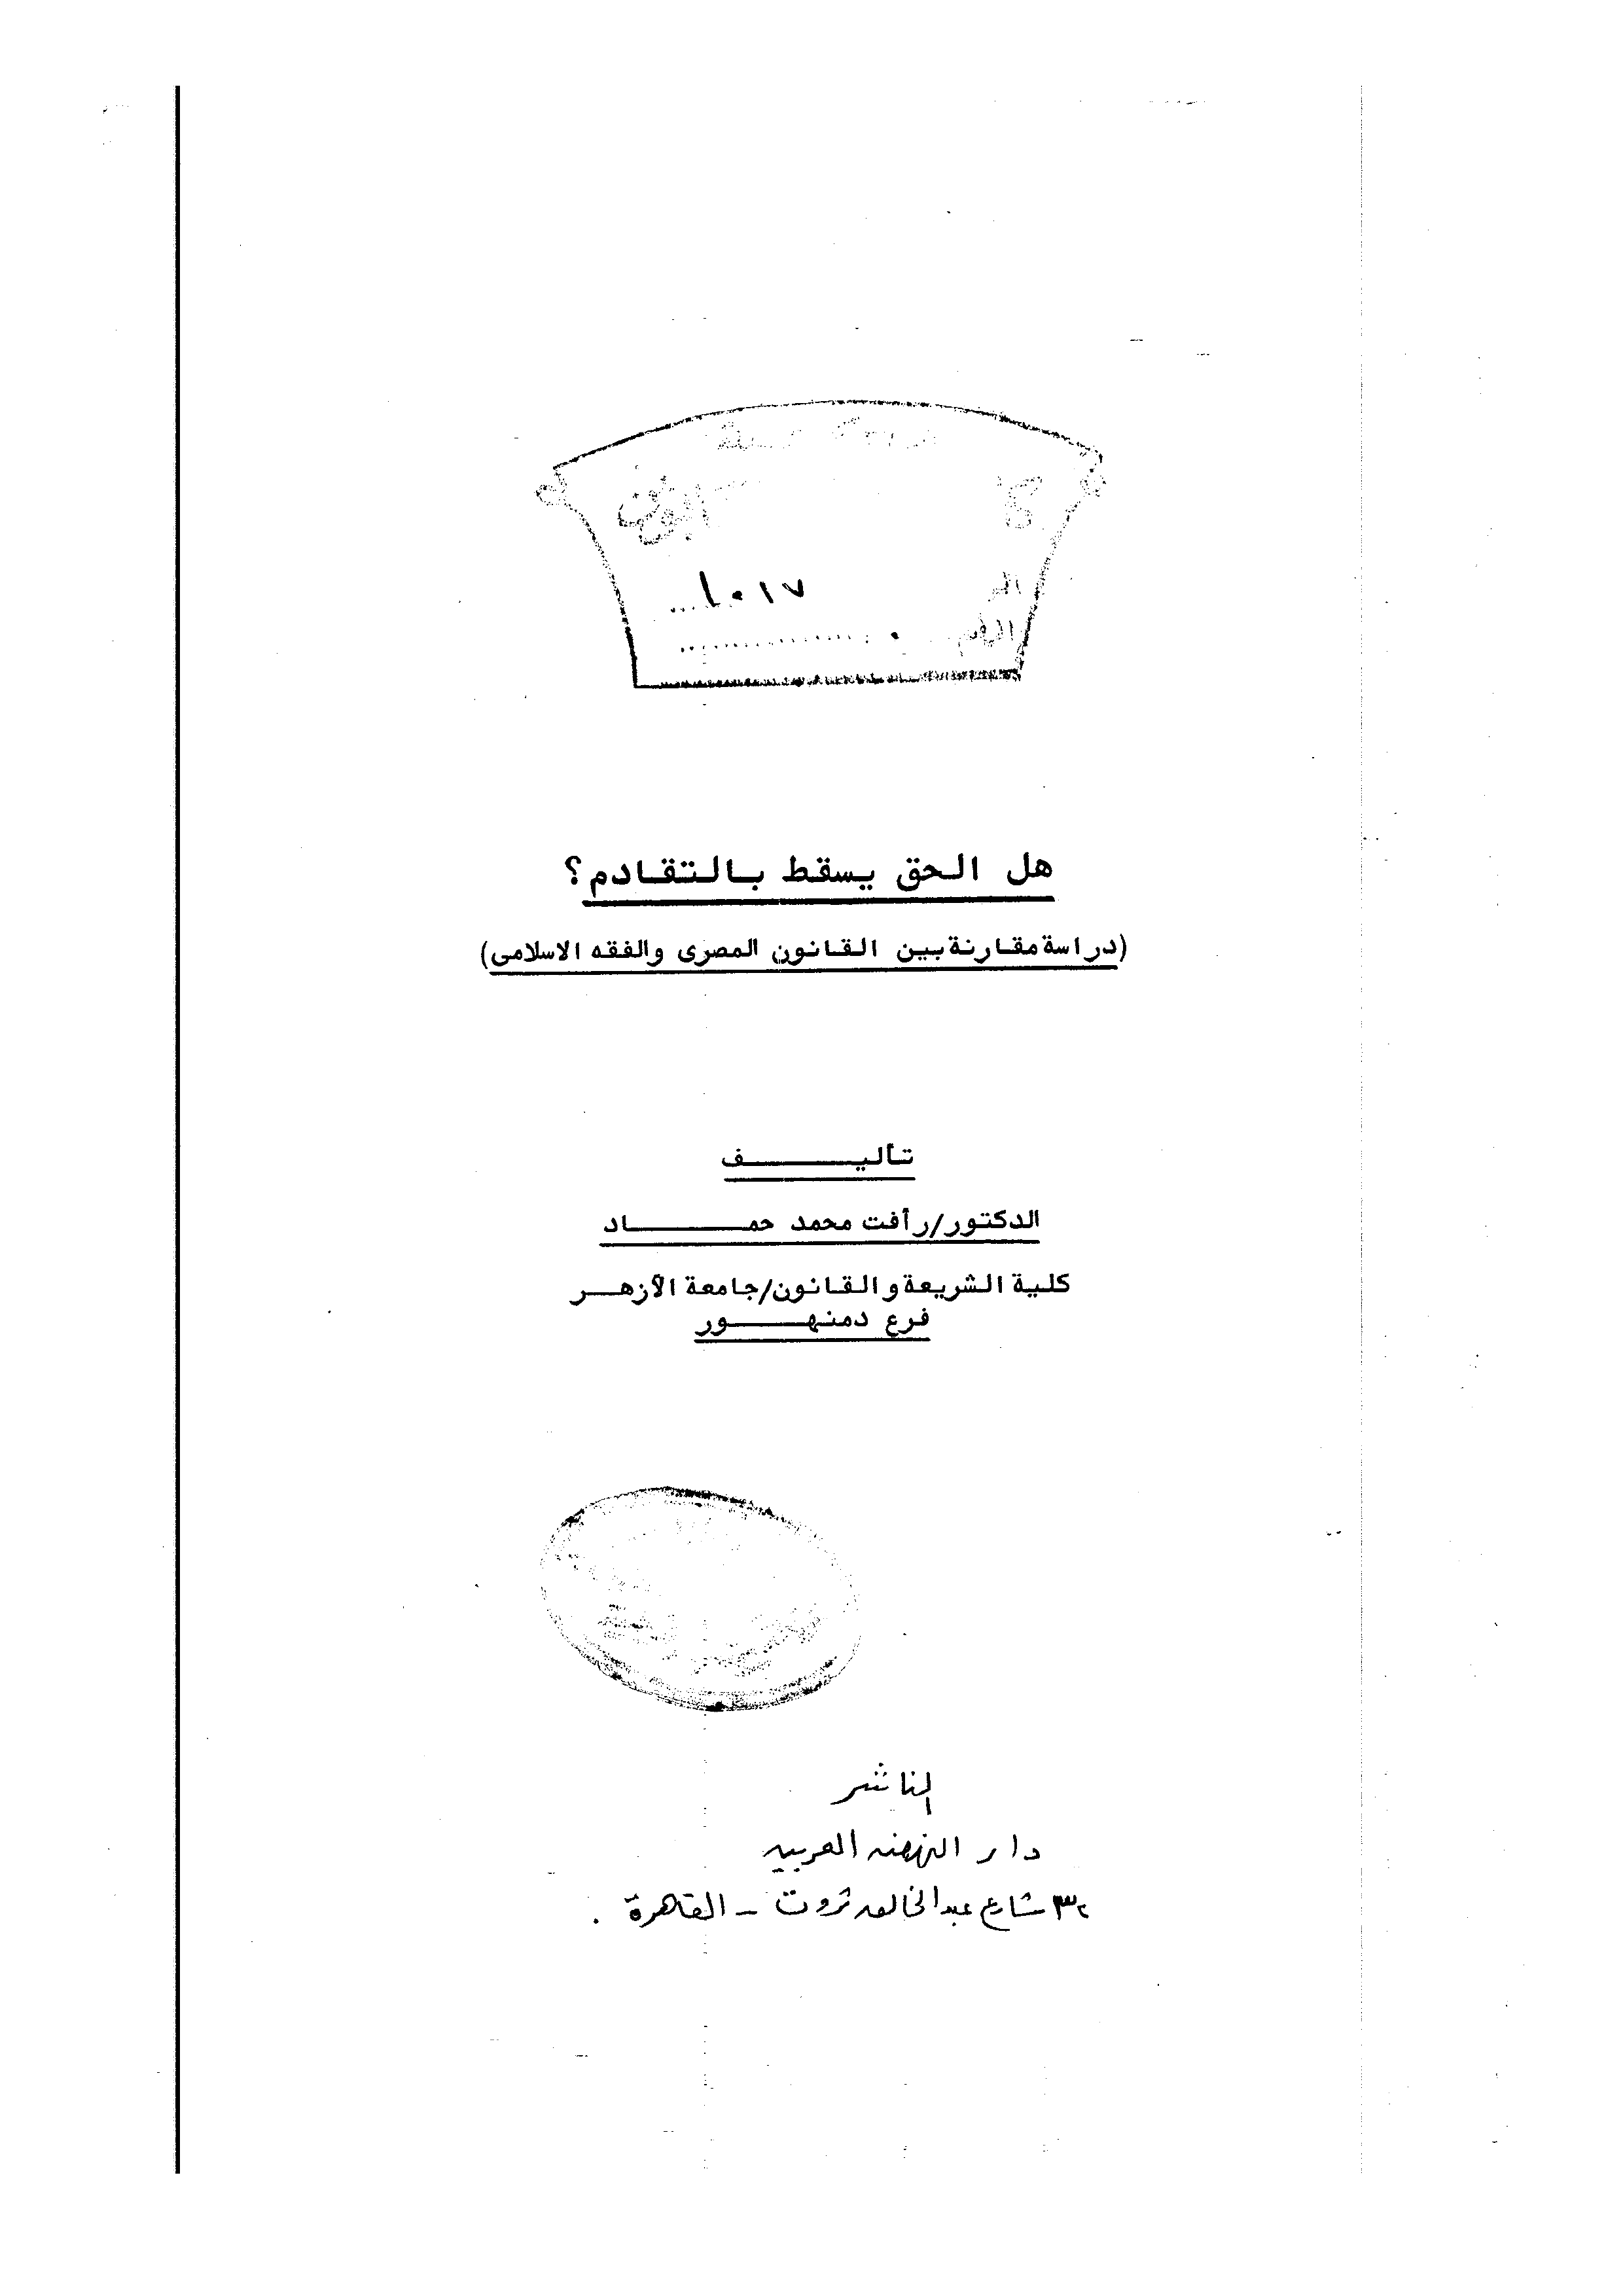 ١٠١٧
الرقم
هل الحق يسقط بالتقادم؟
(دراسة مقارنة بين القانون المصرى والفقه الاسلامى)
تأليف
الدكتور/رأفت محمد حماد
كلية الشريعة والقانون/جامعة الأزهر
فرع دمنهور
الناشر
دار النهضه العربيه
٣٢ شارع عبدالخالق ثروت - القاهرة .